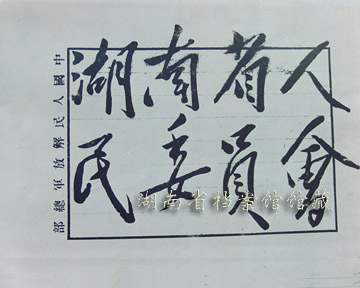 湖南省人
民委員會
中國人民解放軍總部
湖南省档案馆馆藏